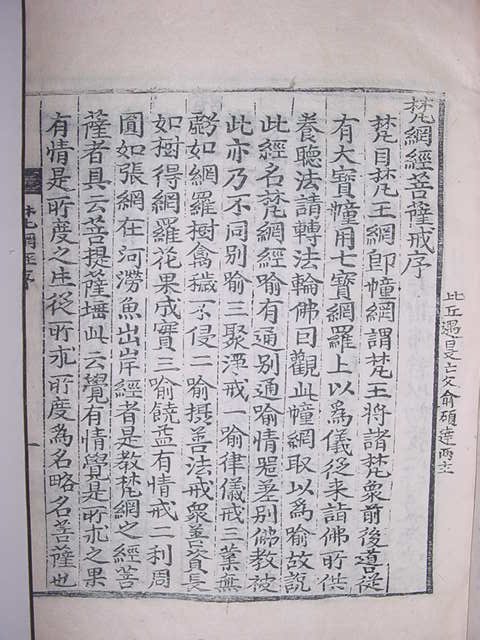 比丘遇旻亡父俞碩達両主
梵網經菩薩戒序
梵目梵王網即幢網謂梵王將諸梵衆前後道從
有大寶幢用七寶網羅上以爲儀從来詣佛所供
養聽法請轉法輪佛曰觀此幢網取以爲喻故說
此經名梵網經喻有通別通喻情器差別佛教被
此亦乃不同別喻三聚淨戒一喻律儀戒三業無
虧如網羅樹禽穢不侵二喻攝善法戒衆善資長
如樹得網羅花果成實三喻饒益有情戒二利周
圓如張網在河澇魚出岸經者是教梵網之經菩
薩者具云菩提薩埵此云覺有情覺是所求之果
有情是所度之生從所求所度爲名略名菩薩也
梵網經序
一